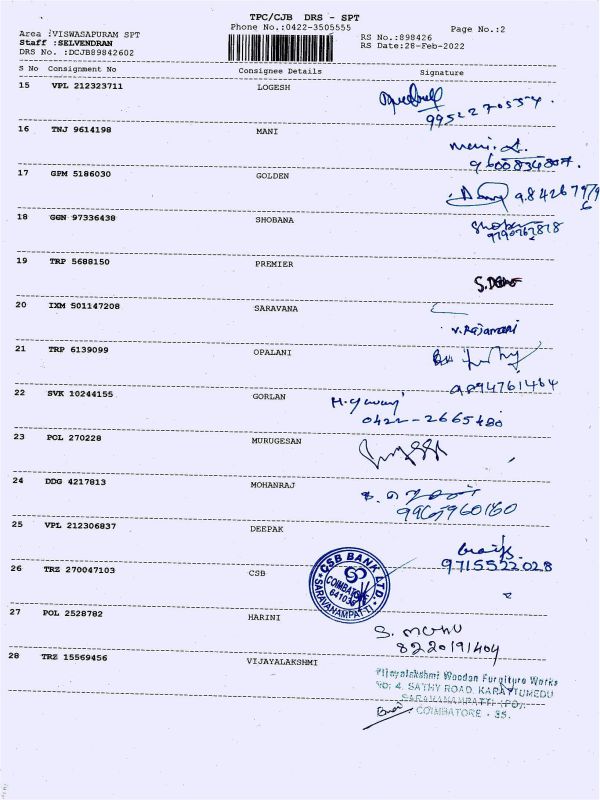 TPC/CJB DRS - SPT
Phone No.:0422-3505555
Page No.:2
Area :VISWASAPURAM SPT
Staff :SELVENDRAN
DRS No. :DCJB89842602
RS No.:898426
RS Date:28-Feb-2022
S No Consignment No Consignee Details Signature
15 VPL 212323711 LOGESH
16 TNJ 9614198 MANI
Mani.
9600834807.
17 GPM 5186030 GOLDEN
18 GGN 97336438 SHOBANA
19 TRP 5688150 PREMIER
20 IXM 501147208 SARAVANA
V. Rajamani
21 TRP 6139099 OPALANI
9894761464
22 SVK 10244155 GORLAN
0422-2665480
23 POL 270228 MURUGESAN
24 DDG 4217813 MOHANRAJ
25 VPL 212306837 DEEPAK
9715522028
26 TRZ 270047103 CSB
CSB BANK LTD.
COIMBATORE
SARAVANAMPATTI
27 POL 2528782 HARINI
8220191404
28 TRZ 15569456 VIJAYALAKSHMI
Vijayalakshmi Woodan Furgiture Works
NO; 4. SATHY ROAD, KARATTUMEDU
SARAVANAMPATTI (PO),
COIMBATORE - 35.